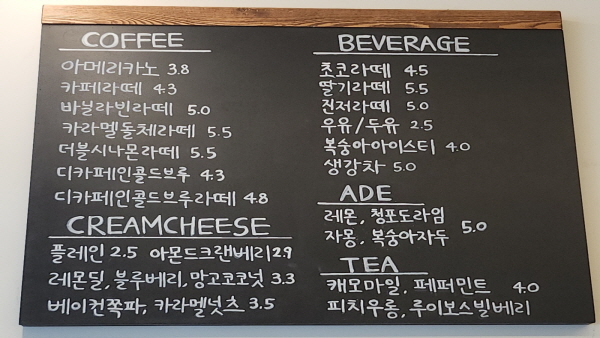 COFFEE
아메리카노 3.8
카페라떼 4.3
바닐라빈라떼 5.0
카라멜돌체라떼 5.5
더블시나몬라떼 5.5
디카페인콜드브루 4.3
디카페인콜드브루라떼 4.8
CREAMCHEESE
플레인 2.5 아몬드크랜베리 2.9
레몬딜, 블루베리, 망고코코넛 3.3
베이컨쪽파, 카라멜넛츠 3.5
BEVERAGE
초코라떼 4.5
딸기라떼 5.5
진저라떼 5.0
우유/두유 2.5
복숭아아이스티 4.0
생강차 5.0
ADE
레몬, 청포도라임
자몽, 복숭아자두 5.0
TEA
캐모마일, 페퍼민트 4.0
피치우롱, 루이보스빌베리